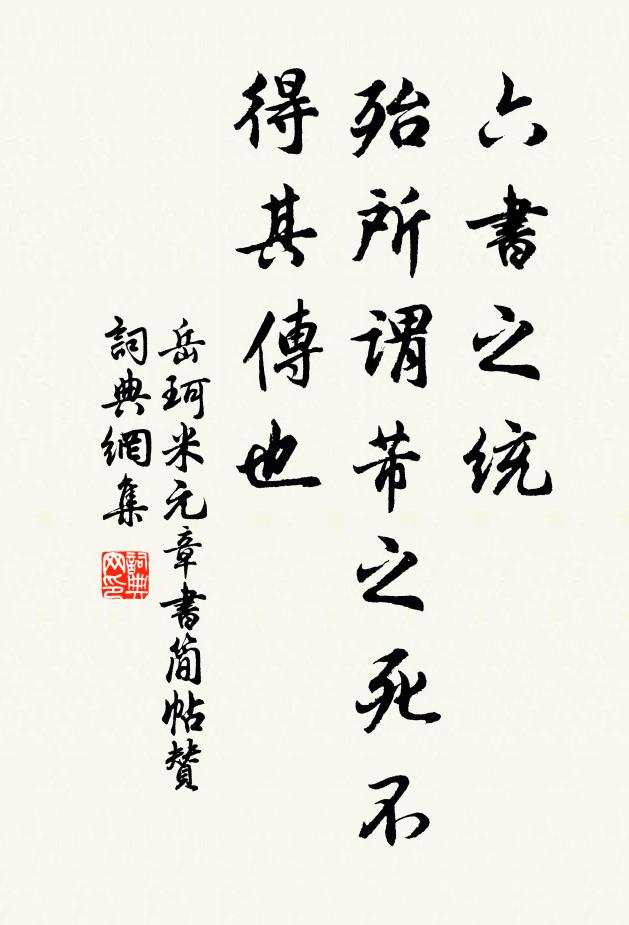 六書之統
殆所謂芾之死不
得其傳也
岳珂米元章書簡帖贊
詞典網集
詞典网印